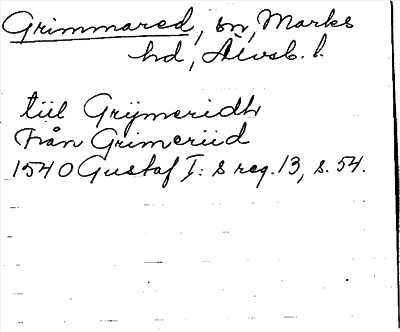 Grimmared, sn, Marks
hd, Älvsb. l.
tiil Grijmeridh
Från Grimeriid
1540 Gustaf I:s reg. 13, s. 54.